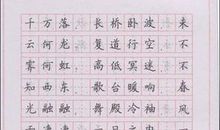 千万落。长桥卧波，未
云何龙？复道行空，不
霁何虹？高低冥迷，不
知西东。歌台暖响，春
光融融；舞殿冷袖，风